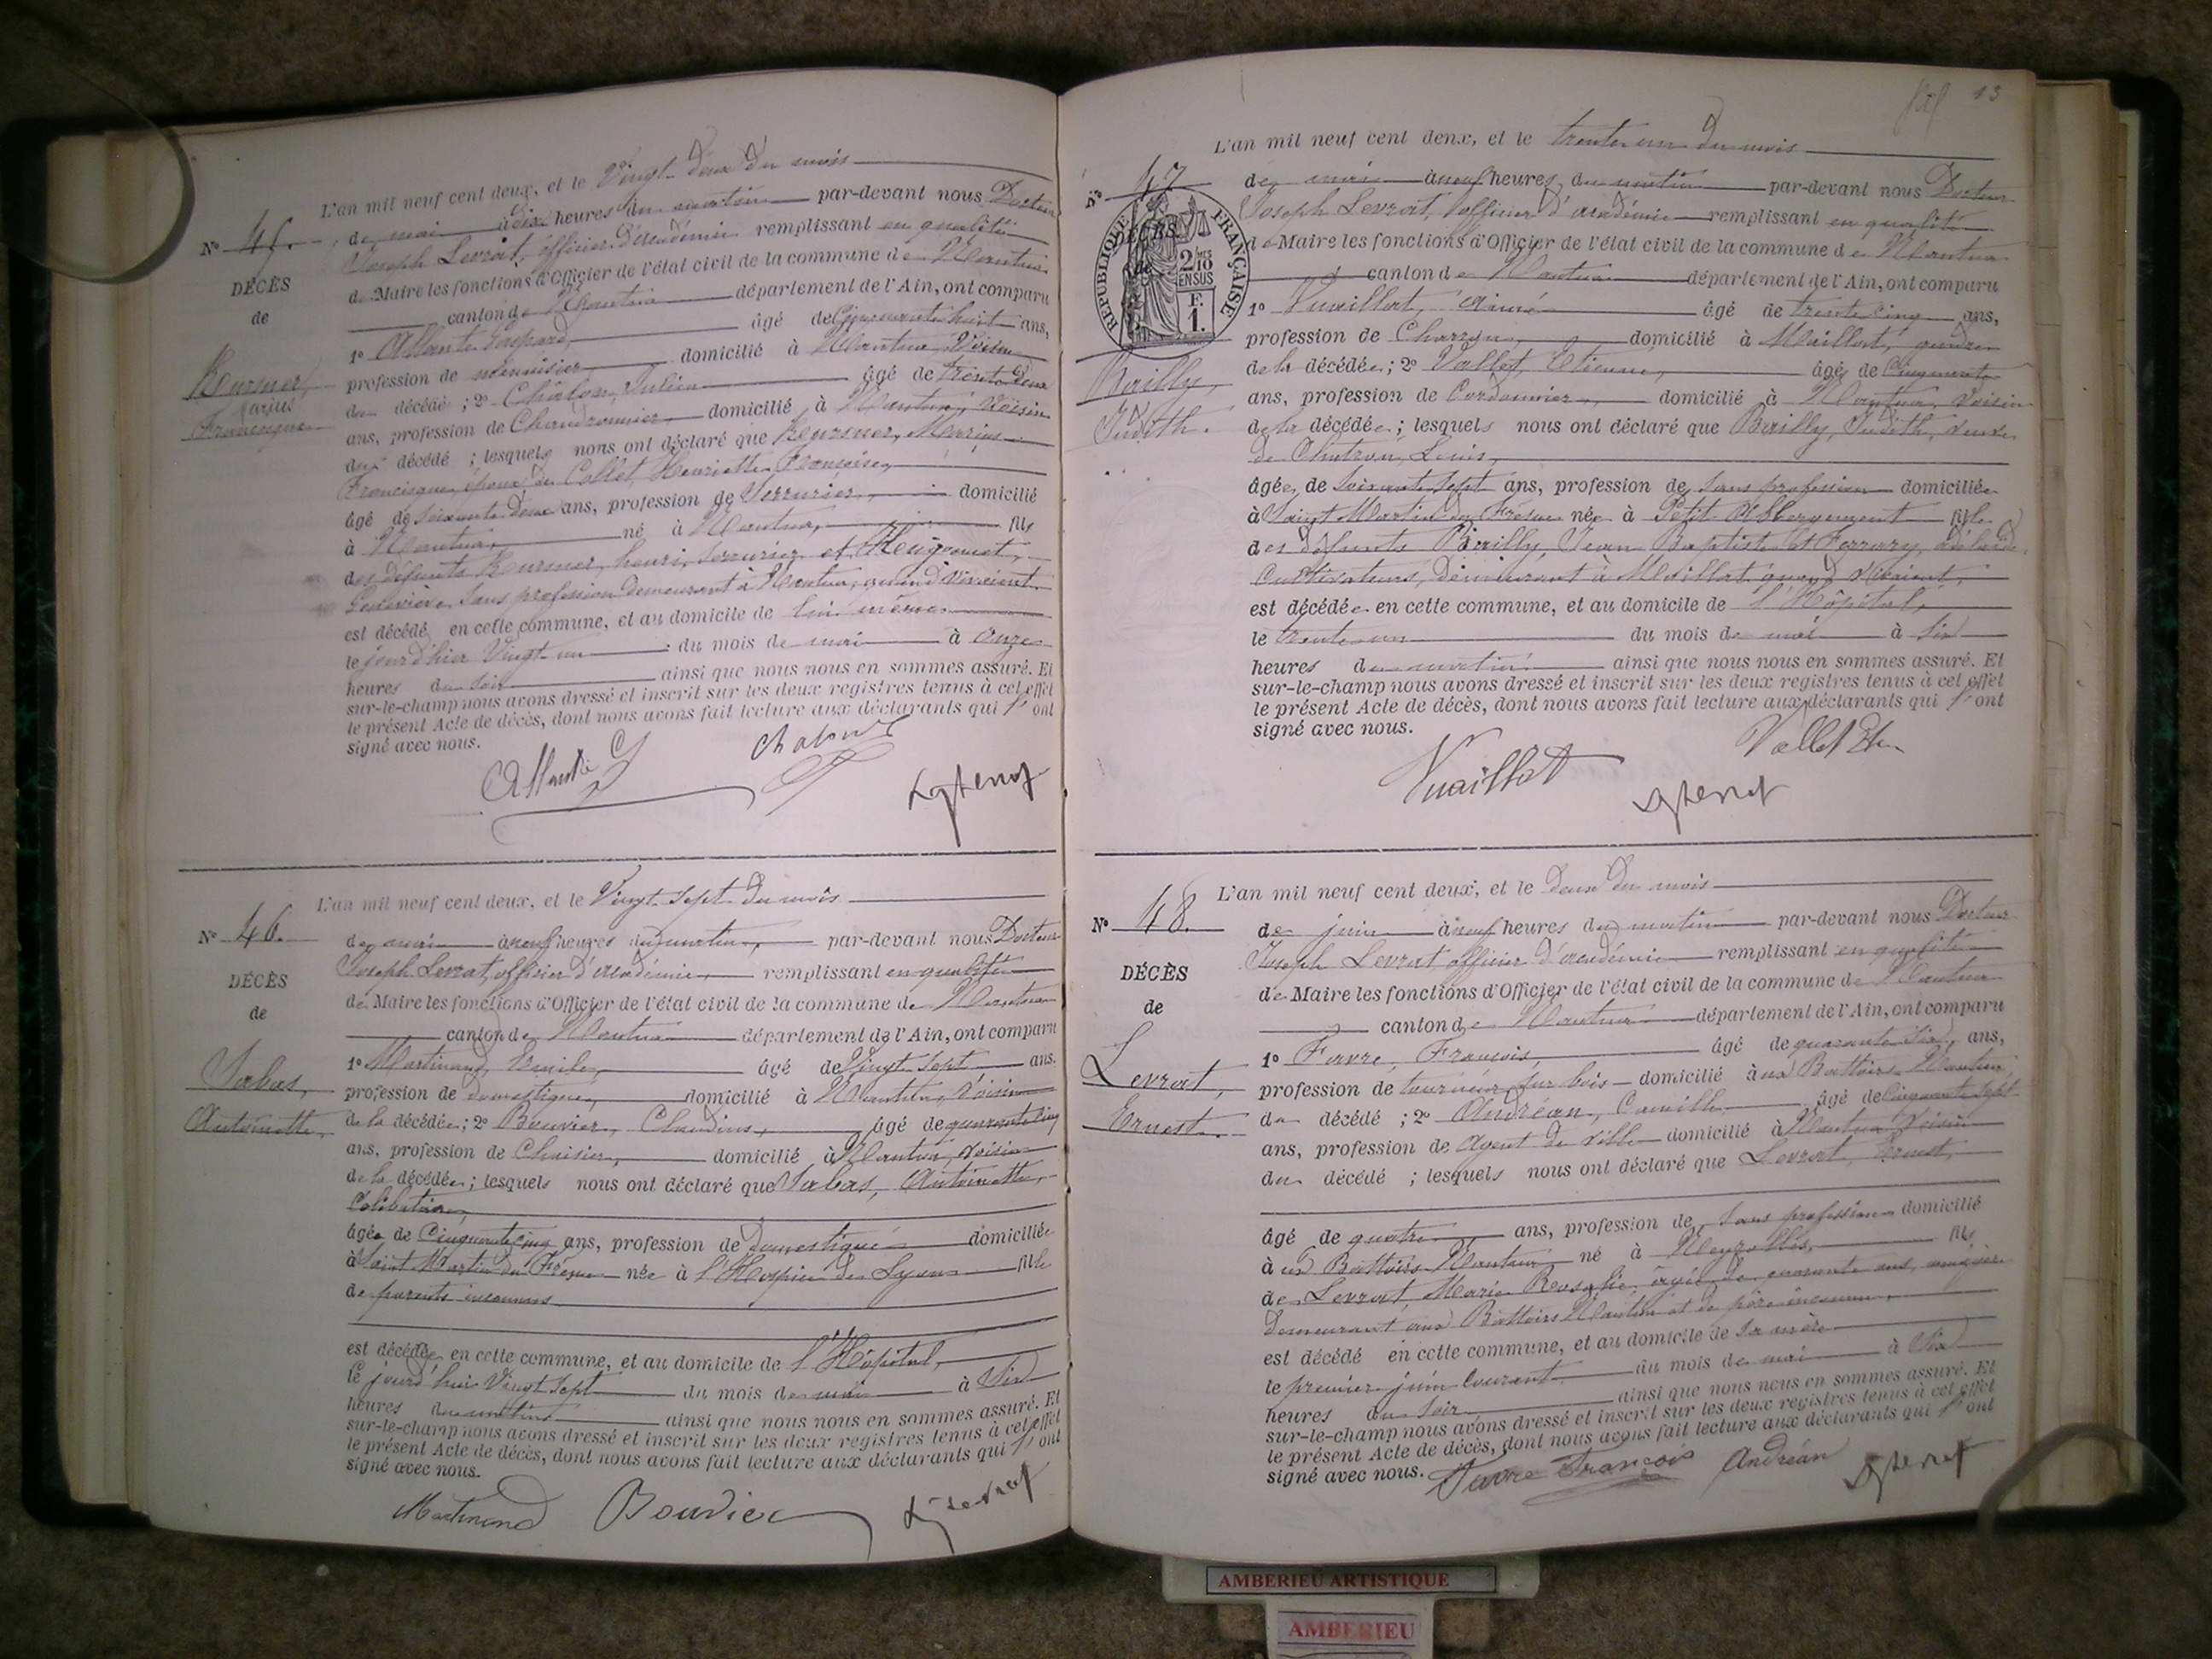 L'an mil neuf cent deux, et le Vingt-deux du mois
N° 45.
de mai à dix heures du matin par-devant nous Docteur
Joseph Levrat, officier d'académie remplissant en qualité
de Maire les fonctions d'Officier de l'état civil de la commune de Nantua
DÉCÈS
de
canton de Nantua département de l'Ain, ont comparu
1° Allante Gaspard, âgé de Cinquante huit ans,
profession de menuisier domicilié à Nantua, Voisin
du décédé ; 2° Châlon, Julien âgé de trente deux
Marius
Francisque
ans, profession de Chaudronnier domicilié à Nantua, Voisin
du décédé ; lesquels nous ont déclaré que Marius
Francisque, époux de Collet, Henriette Françoise,
âgé de soixante deux ans, profession de Serrurier, domicilié
à Nantua, né à Nantua, fils
des défunts henri, Serrurier et
Geneviève, Sans profession demeurant à Nantua, quand vivaient
est décédé en cette commune, et au domicile de lui-même
le jourd'hier Vingt-un du mois de mai à onze
heures du soir ainsi que nous nous en sommes assuré. Et
sur-le-champ nous avons dressé et inscrit sur les deux registres tenus à cet effet
le présent Acte de décès, dont nous avons fait lecture aux déclarants qui l'ont
signé avec nous.
Allante G Chalon J
L'an mil neuf cent deux, et le Vingt-Sept du mois
N° 46.
de mai à neuf heures du matin, par-devant nous Docteur
Joseph Levrat, officier d'académie remplissant en qualité
DÉCÈS
de Maire les fonctions d'Officier de l'état civil de la commune de Nantua
de
canton de Nantua département de l'Ain, ont comparu
1° Martinand, Emile, âgé de Vingt-Sept ans.
Sabas,
Antoinette,
profession de domestique, domicilié à Nantua, Voisin
de la décédée ; 2° Bouvier, Claudius, âgé de quarante cinq
ans, profession de Chaisier, domicilié à Nantua, Voisin
de la décédée ; lesquels nous ont déclaré que Sabas, Antoinette,
Célibataire,
âgée de Cinquante cinq ans, profession de domestique domiciliée
à Saint Martin du Frêne née à l'Hospice de Lyon fille
de parents inconnus
est décédée en cette commune, et au domicile de l'Hôpital,
le jourd'hui Vingt Sept du mois de mai à Six
heures du matin ainsi que nous nous en sommes assuré. Et
sur-le-champ nous avons dressé et inscrit sur les deux registres tenus à cet effet
le présent Acte de décès, dont nous avons fait lecture aux déclarants qui l'ont
signé avec nous.
Martinand Bouvier J Levrat
13
L'an mil neuf cent deux, et le trente-un du mois
N° 47
de mai à neuf heures du matin par-devant nous Docteur
Joseph Levrat, officier d'académie remplissant en qualité
de Maire les fonctions d'Officier de l'état civil de la commune de Nantua
RÉPUBLIQUE FRANÇAISE
2/10 EN SUS
F. 1.
DÉCÈS
de
canton de Nantua département de l'Ain, ont comparu
1° Vuaillat, Aimé âgé de trente cinq ans,
profession de Charron, domicilié à Maillat, gendre
Bailly,
Judith.
de la décédée ; 2° Vallet, Etienne, âgé de Cinquante
ans, profession de Cordonnier, domicilié à Nantua, Voisin
de la décédée ; lesquels nous ont déclaré que Bailly, Judith, veuve
de Chatron, Louis,
âgée de Soixante Sept ans, profession de, Sans profession domiciliée
à Saint Martin du Fresne née à Petit Abbergement fille
des défunts Bailly, Jean Baptiste et Ferrary,
Cultivateurs, demeurant à Maillat, quand vivaient,
est décédée en cette commune, et au domicile de l'Hôpital,
le trente-un du mois de mai à Six
heures du matin ainsi que nous nous en sommes assuré. Et
sur-le-champ nous avons dressé et inscrit sur les deux registres tenus à cet effet
le présent Acte de décès, dont nous avons fait lecture aux déclarants qui l'ont
signé avec nous.
Vuaillat Vallet Etn
L'an mil neuf cent deux, et le Deux du mois
N° 48.
de juin à neuf heures du matin par-devant nous Docteur
Joseph Levrat officier d'académie remplissant en qualité
DÉCÈS
de Maire les fonctions d'Officier de l'état civil de la commune de Nantua
de
canton de Nantua département de l'Ain, ont comparu
1° Favre, François, âgé de quarante Six, ans,
Levrat,
Ernest.
profession de tourneur sur bois domicilié aux Battoirs Nantua,
du décédé ; 2° Andréan, Camille âgé de Cinquante Sept
ans, profession de Agent de Ville domicilié à Nantua Voisin
du décédé ; lesquels nous ont déclaré que Levrat, Ernest,
âgé de quatre ans, profession de, Sans profession domicilié
aux Battoirs Nantua né à Neyrolles, fils
de Levrat, Marie Rosalie, âgée de quarante ans, ménagère
demeurant aux Battoirs Nantua et de père inconnu,
est décédé en cette commune, et au domicile de sa mère
le premier juin Courant du mois de mai à Six
heures du Soir ainsi que nous nous en sommes assuré. Et
sur-le-champ nous avons dressé et inscrit sur les deux registres tenus à cet effet
le présent Acte de décès, dont nous avons fait lecture aux déclarants qui l'ont
signé avec nous. Favre François Andréan
AMBERIEU ARTISTIQUE
AMBERIEU